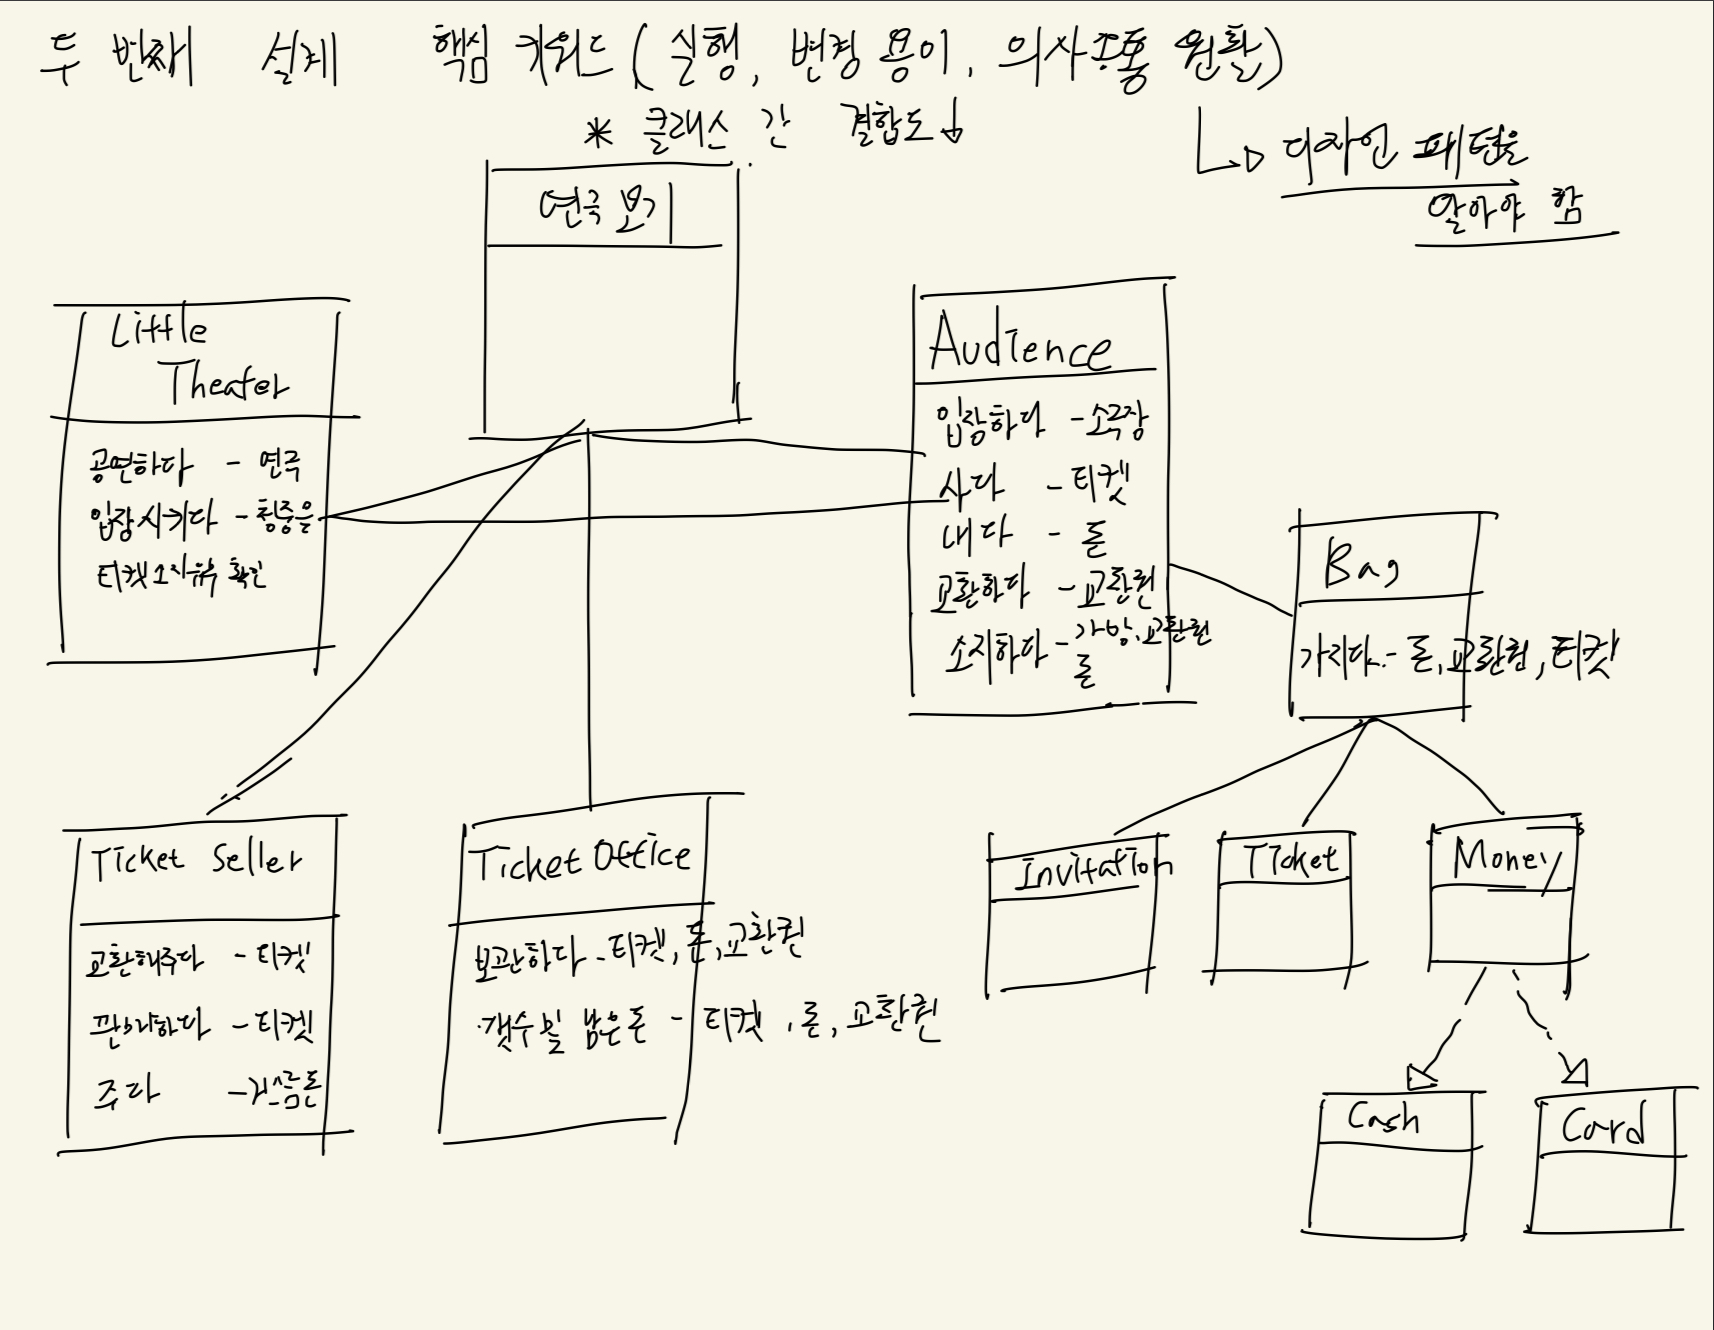 두 번째 설계 핵심 키워드 ( 실행, 변경 용이, 의사소통 원활)
* 클래스 간 결합도↓
↳ 디자인 패턴을
알아야 함
연극 보기
Little
Theater
공연하다 - 연극
입장시키다 - 청중을
티켓 소지유무 확인
Audience
입장하다 - 소극장
사다 - 티켓
내다 - 돈
교환하다 - 교환권
소지하다 - 가방, 교환권
돈
Bag
가지다 - 돈, 교환권, 티켓
Ticket Seller
교환해주다 - 티켓
판매하다 - 티켓
주다 - 거스름돈
Ticket Office
보관하다 - 티켓, 돈, 교환권
갯수 및 남은 돈 - 티켓, 돈, 교환권
Invitation
Ticket
Money
Cash
Card